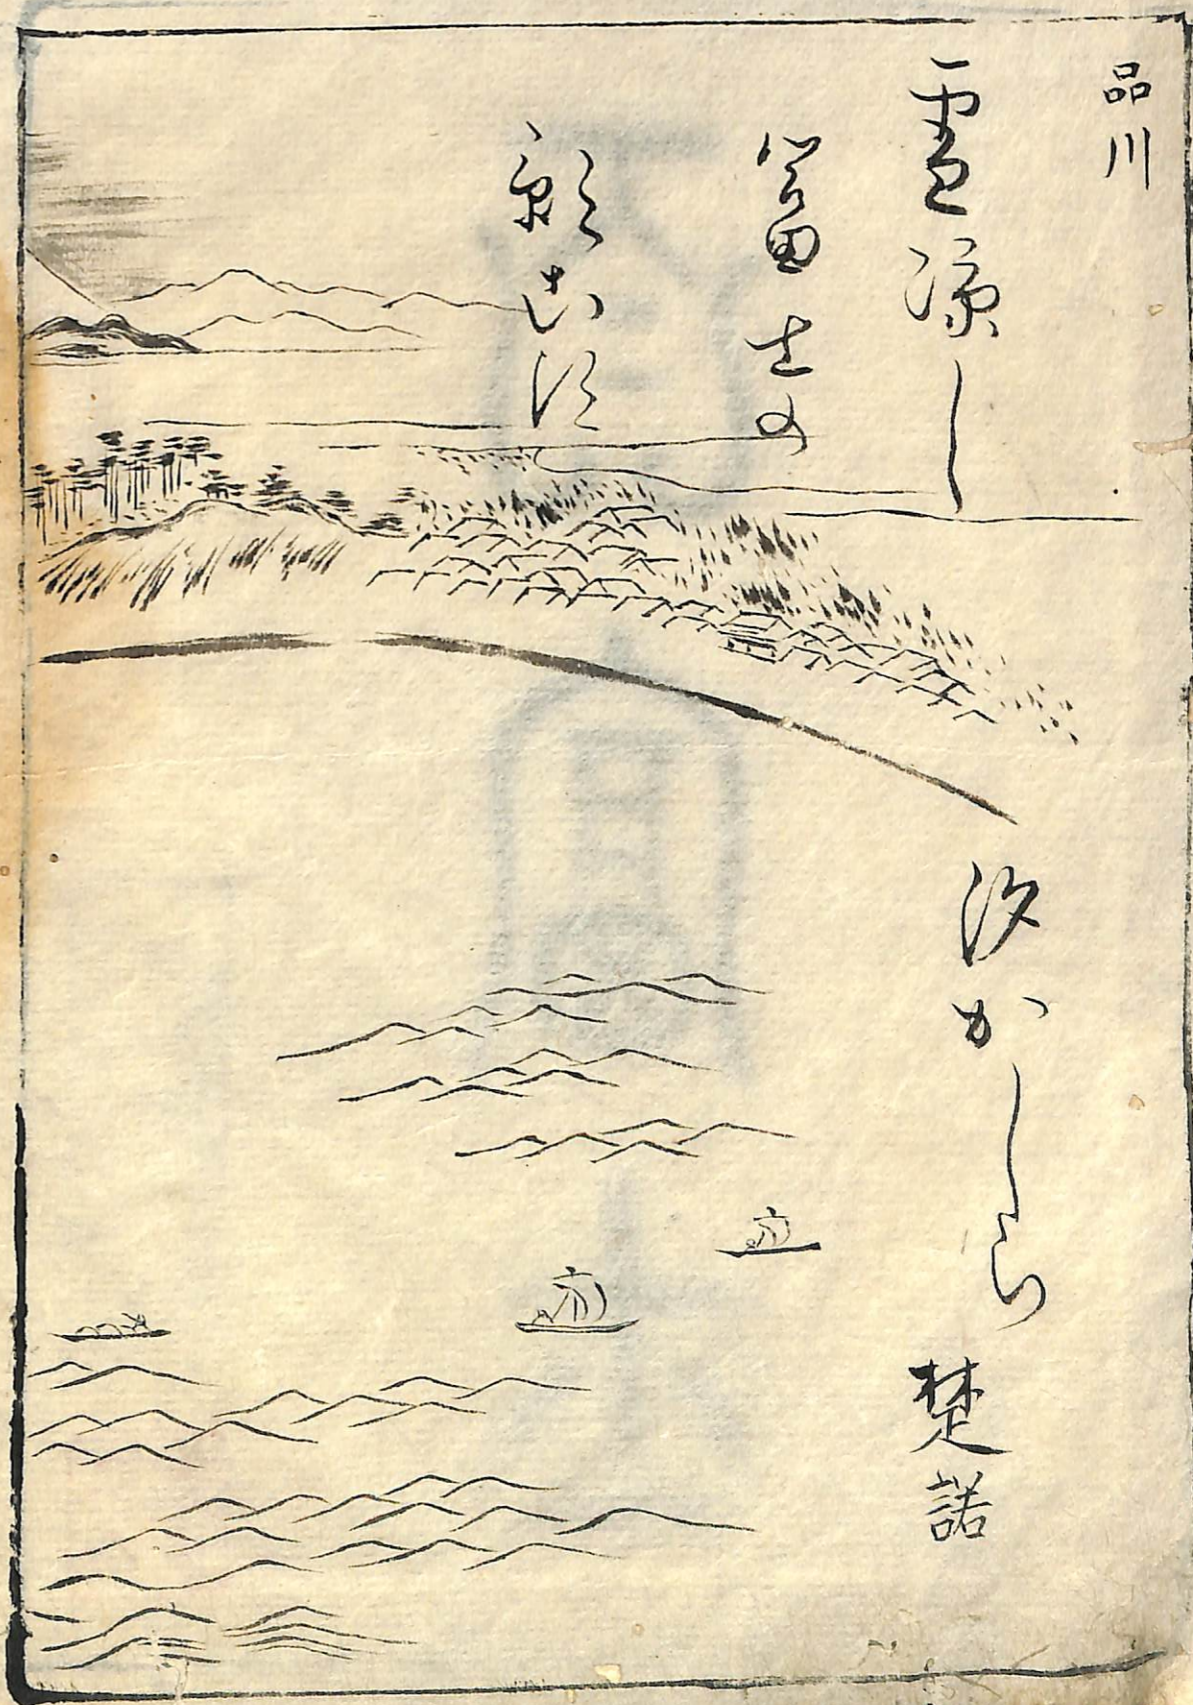 品川
雪涼し
富士の
こす
汐かしら
楚諾